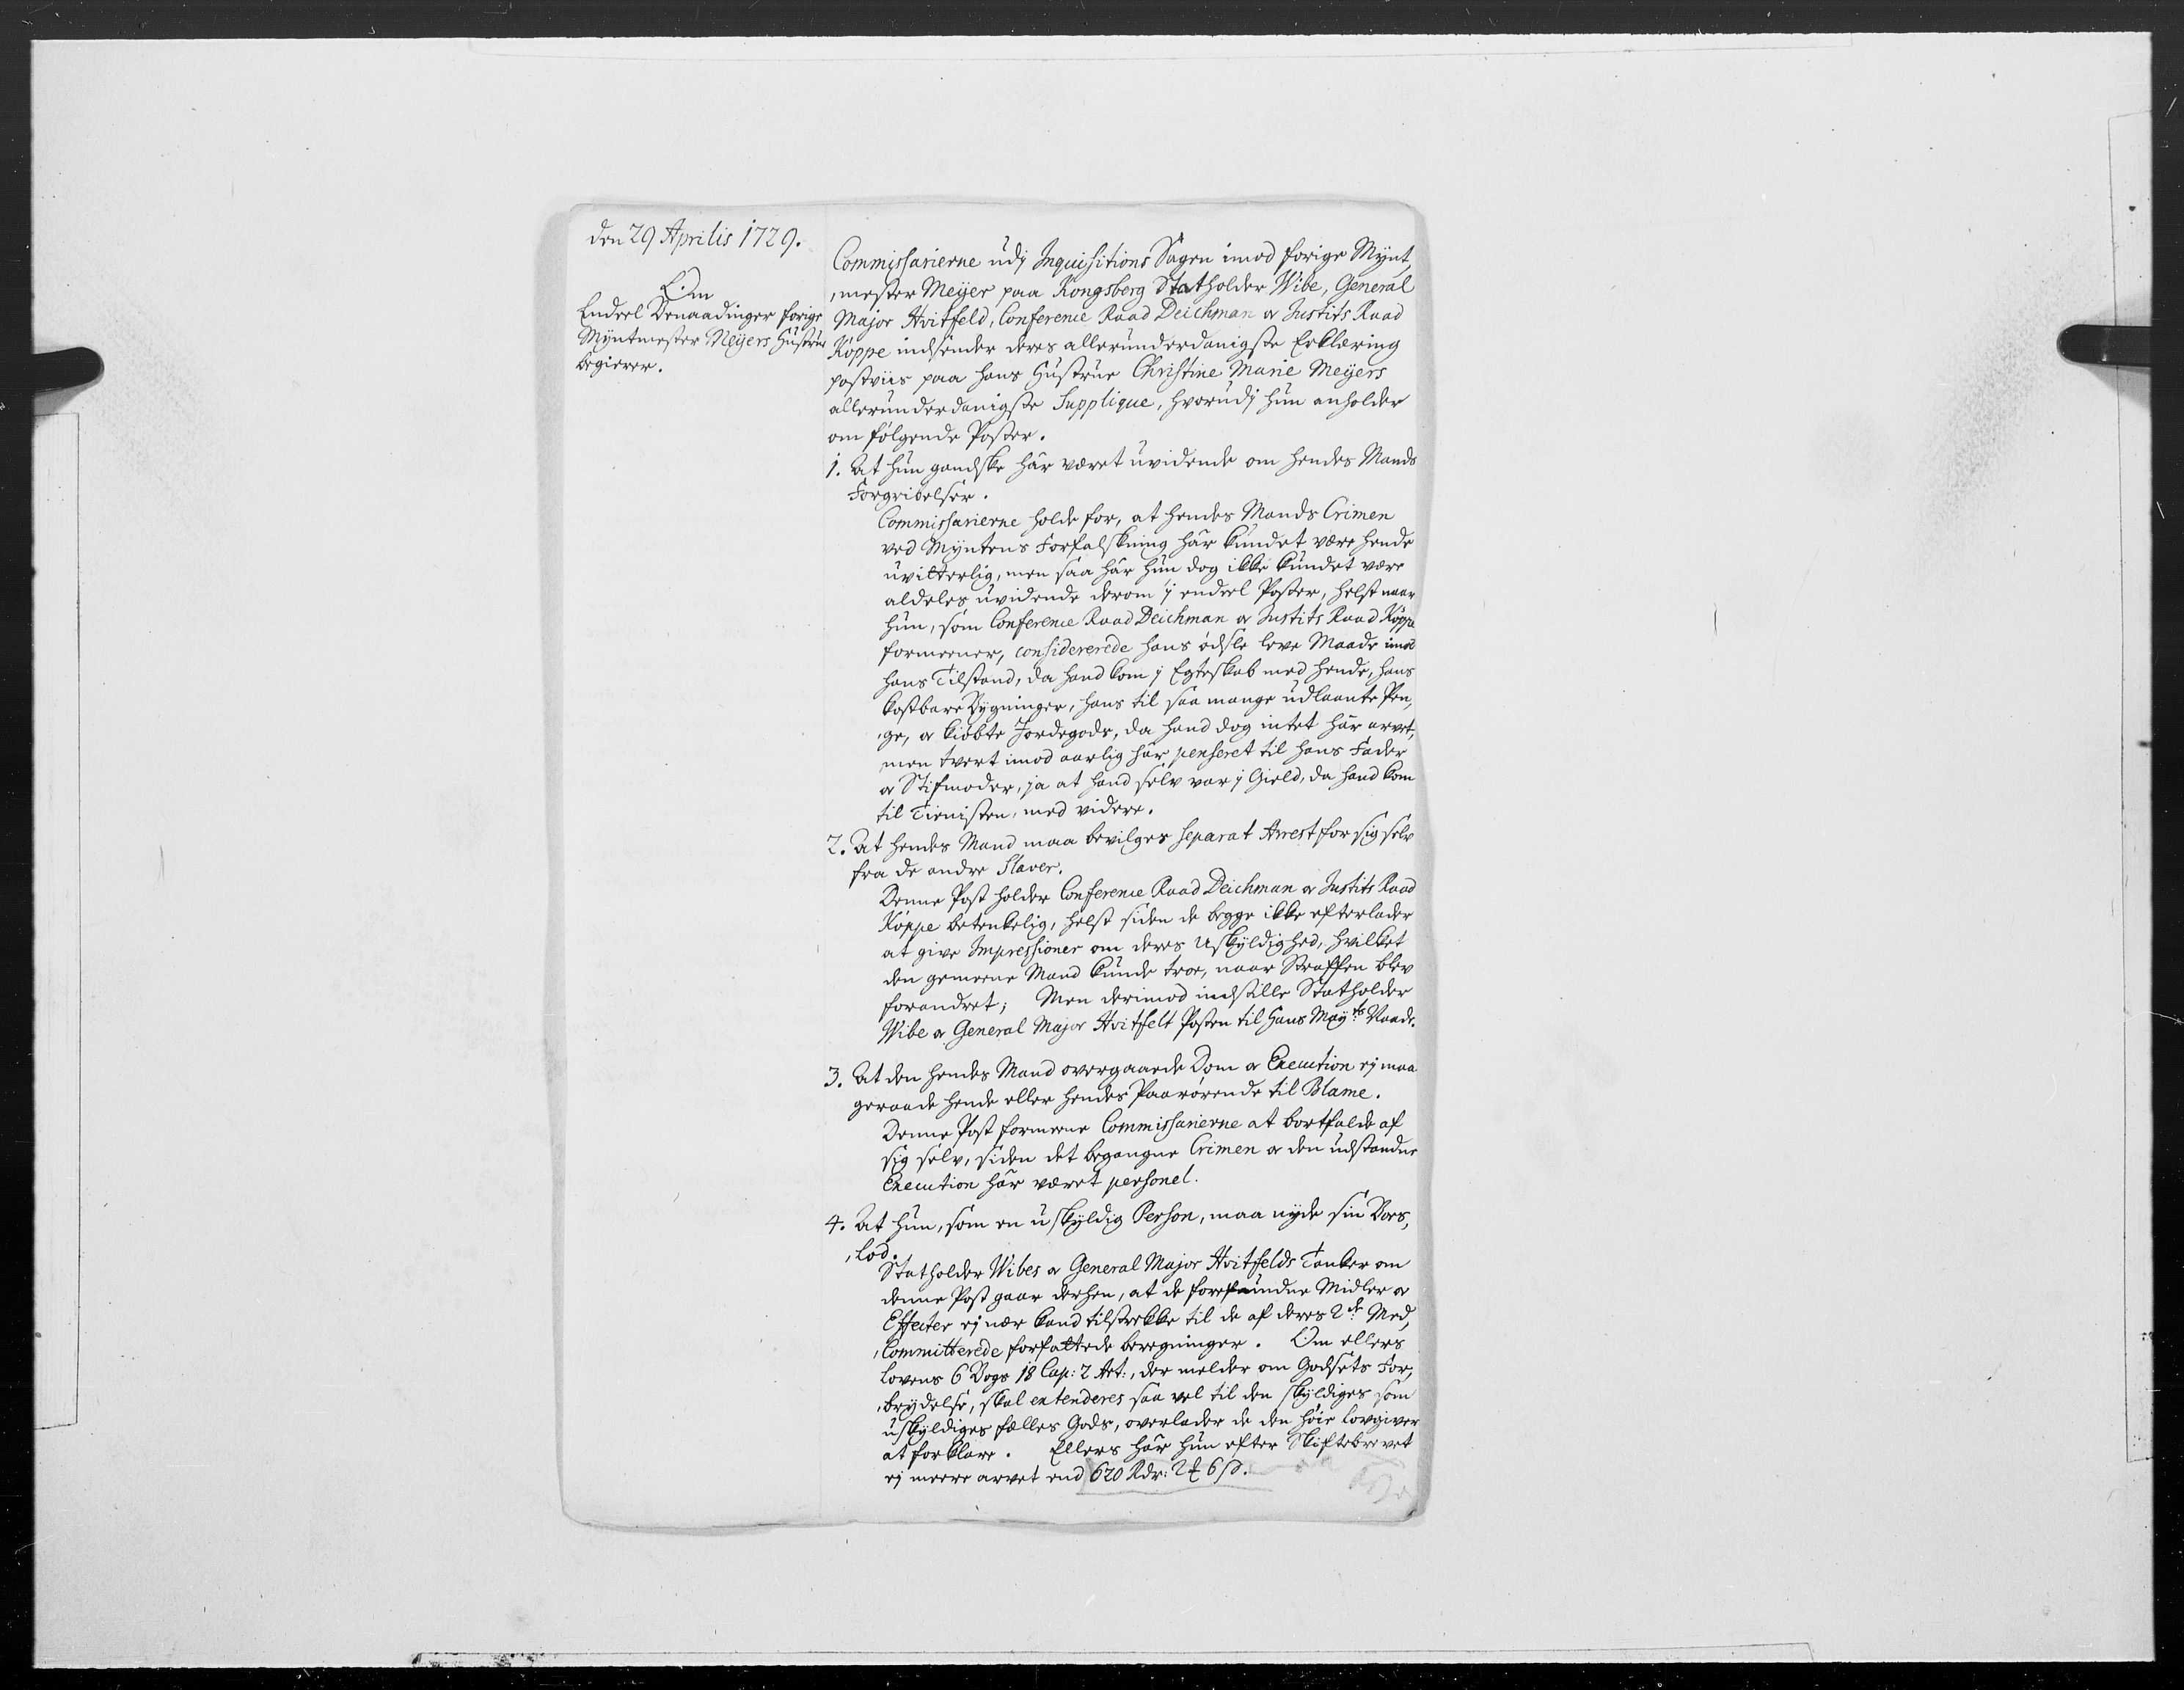 den 29 Aprilis 1729.
Om
Endeel Benaadinger forige
Myntmester Meÿers Hustrue
begierer.
Commissarierne udj Inquisitions Sagen imod forige Mynt,
,mester Meÿer paa Kongsberg Statholder Wibe, General
Major Hvitfeld, Conference Raad Deichman og Justits Raad
Köppe indsender deres allerunderdanigste Erklæring
postviis paa hans Hustrue Christine Marie Meÿers
allerunderdanigste Supplique, hvorudj hun anholder
om følgende Poster.
1. At hun gandske har været uvidende om hendes Mands
Forgribelser.
Commissarierne holde for, at hendes Mands Crimen
ved Myntens Forfalskning har kundet være hende
uvitterlig, men saa har hun dog ikke kundet være
aldeles uvidende derom j endeel Poster, helst naar
hun, som Conference Raad Deichman og Justits Raad Köppe
formeener, considererede hans ødsle leve Maade imod
hans Tilstand, da hand kom j Egteskab med hende, hans
kostbare Bygninger, hans til saa mange udlaante Pen,
,ge, og kiøbte Jordegods, da hand dog intet har arvet,
men tvert imod aarlig har penseret til hans Fader
og Stifmoder, ja at hand selv var j Gield, da hand kom
til Tienisten, med videre.
2. At hendes Mand maa bevilges separat Arrest for sig selv
fra de andre Slaver.
Denne Post holder Conference Raad Deichman og Justits Raad
Köppe betenkelig, helst siden de begge ikke efterlader
at give Impressioner om deres Uskyldighed, hvilket
den gemeene Mand kunde troe, naar Straffen blev
forandret; Men derimod indstille Statholder
Wibe og General Major Hvitfelt Posten til Hans Mayts Naade.
3. At den hendes Mand overgaaede Dom og Execution ej maa
geraade hende eller hendes Paarørende til Blame.
Denne Post formeene Commissarierne at bortfalde af
sig selv, siden det begangne Crimen og den udstandne
Execution har været personel.
4. At hun, som en uskyldig Person, maa nyde sin Boes,
,lod.
Statholder Wibes og General Major Hvitfelds Tanker om
denne Post gaar derhen, at de forefundne Midler og
Effecter ej nær kand tilstrekke til de af deres 2de Med,
,Committerede forfattede beregninger. Om ellers
Lovens 6 Bogs 18 Cap: 2 Art:, der melder om Godsets For,
,brydelse, skal extenderes saa vel til den skyldiges som
uskyldiges fælles Gods, overlader de den høie Lovgiver
at forklare. Ellers har hun efter Skiftebrevet
ej meere arvet end 620 Rdr: 2 ₰ 6 ß.